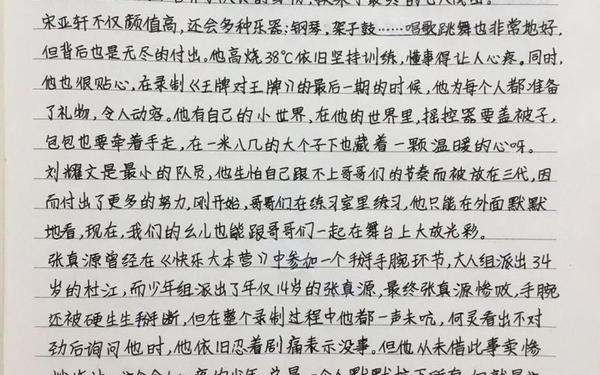 宋亚轩不仅颜值高,还会多种乐器:钢琴,架子鼓……唱歌跳舞也非常地好,
但背后也是无尽的付出。他高烧38℃依旧坚持训练,懂事得让人心疼。同时,
他也很贴心,在录制《王牌对王牌》的最后一期的时候,他为每个人都准备
了礼物,令人动容。他有自己的小世界,在他的世界里,摇控器要盖被子,
包包也要牵着手走,在一米八几的大个子下也藏着一颗温暖的心呀。
刘耀文是最小的队员,他生怕自己跟不上哥哥们的节奏而被放在三代,因
而付出了更多的努力,刚开始,哥哥们在练习室里练习,他只能在外面默默
地看,现在,我们的幺儿也能跟哥哥们一起在舞台上大放光彩。
张真源曾经在《快乐大本营》中参加一个掰手腕环节,大人组派出34
岁的杜江,而少年组派出了年仅14岁的张真源,最终张真源惨败,手腕
还被硬生生掰断,但在整个录制过程中他都一声未吭,何灵看出不对
劲后询问他时,他依旧忍着剧痛表示没事。但他从未借此事卖惨